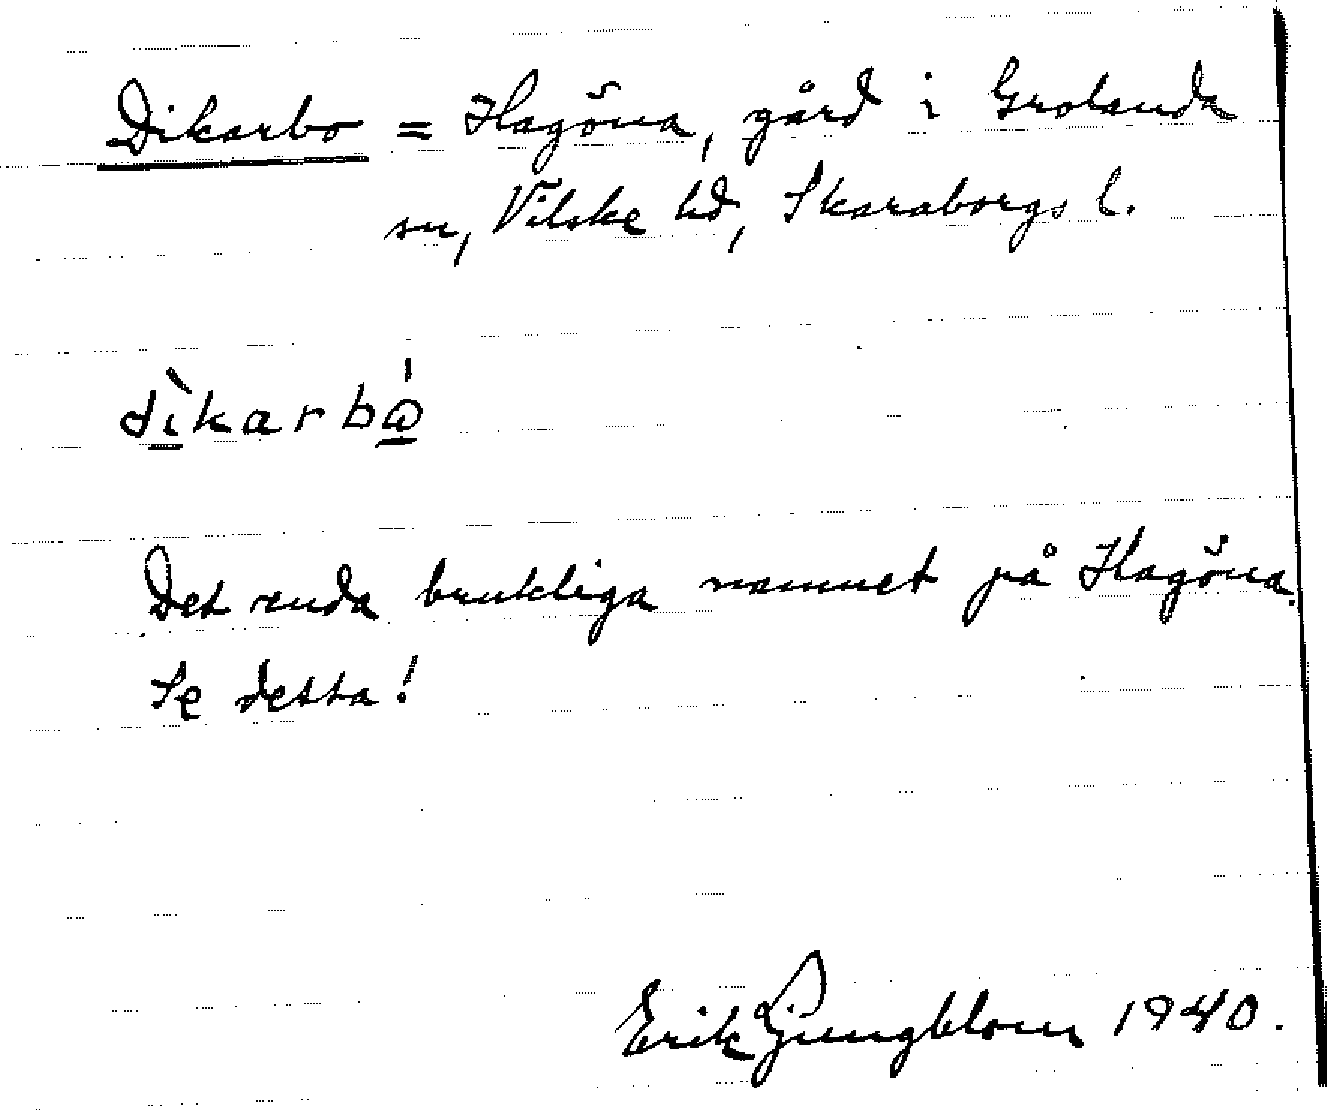 Dikarbo = Hagöna, gård i Grolanda
sn, Vilske hd, Skaraborgs l.
dìkarbǫ́
Det enda brukliga namnet på Hagöna.
Se detta!
Erik Ljungblom 1940.